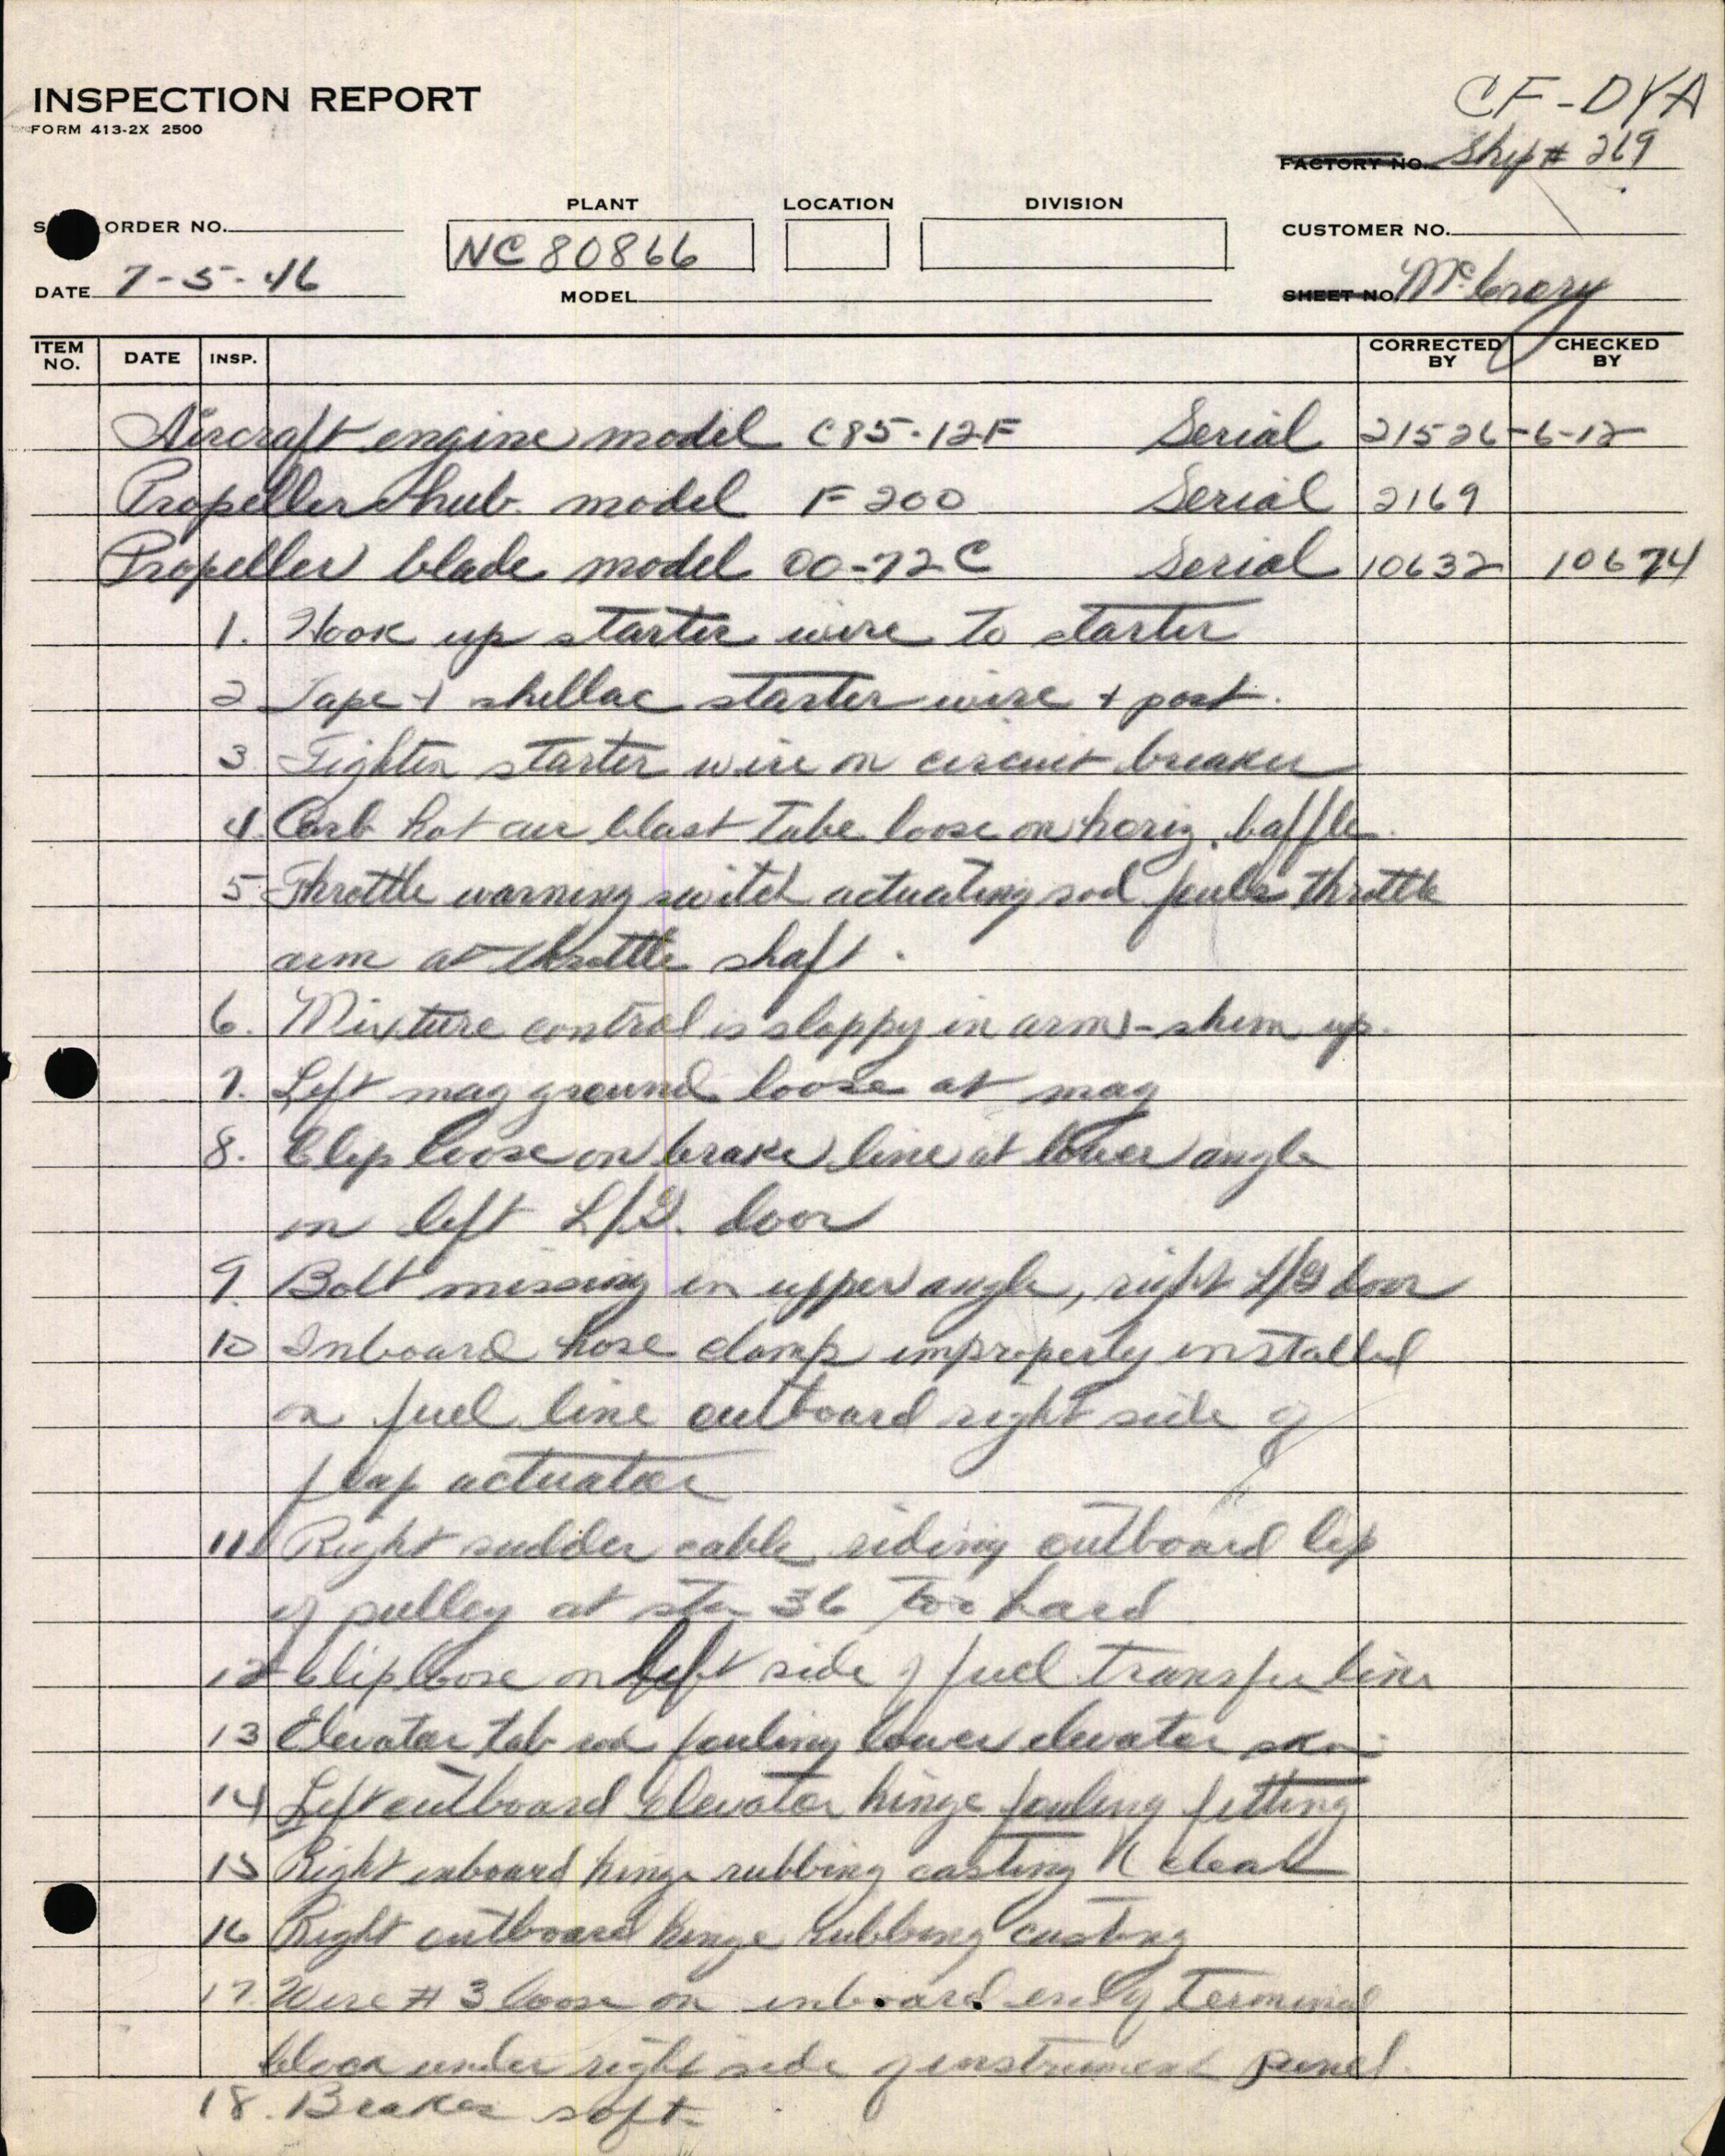 INSPECTION REPORT
FORM 413-2X 2500
CF-DYA
FACTORY NO. Ship # 269
PLANT LOCATION DIVISION
S ORDER NO.
NC80866
CUSTOMER NO.
DATE 7-5-46
MODEL
SHEET NO. McCrory
ITEM NO. DATE INSP. CORRECTED BY CHECKED BY
Aircraft engine model C85-12F Serial 21526-6-12
Propeller hub model F200 Serial 2169
Propeller blade model 00-72C Serial 10632 10674
1. Hook up starter wire to starter
2 Tape + shellac starter wire + post.
3 Tighten starter wire on circuit breaker
4. Carb hot air blast tube loose on horiz. baffle.
5 Throttle warning switch actuating rod fouls throttle
arm at throttle shaft.
6. Mixture control is sloppy in arm - shim up.
7. Left mag ground loose at mag
8. Clip loose on brake line at lower angle
in left L/G. door
9. Bolt missing in upper angle, right L/G door
10 Inboard hose clamp improperly installed
on fuel line outboard right side of
flap actuator
11 Right rudder cable riding outboard lip
of pulley at sta 36 too hard
12 Clip loose on left side of fuel transfer line
13 Elevator tab rod fouling lower elevator skin
14 Left outboard elevator hinge fouling fitting
15 Right inboard hinge rubbing casting
16 Right outboard hinge rubbing casting
17. Wire # 3 loose on inboard end of terminal
block under right side of instrument panel.
18. Brakes soft